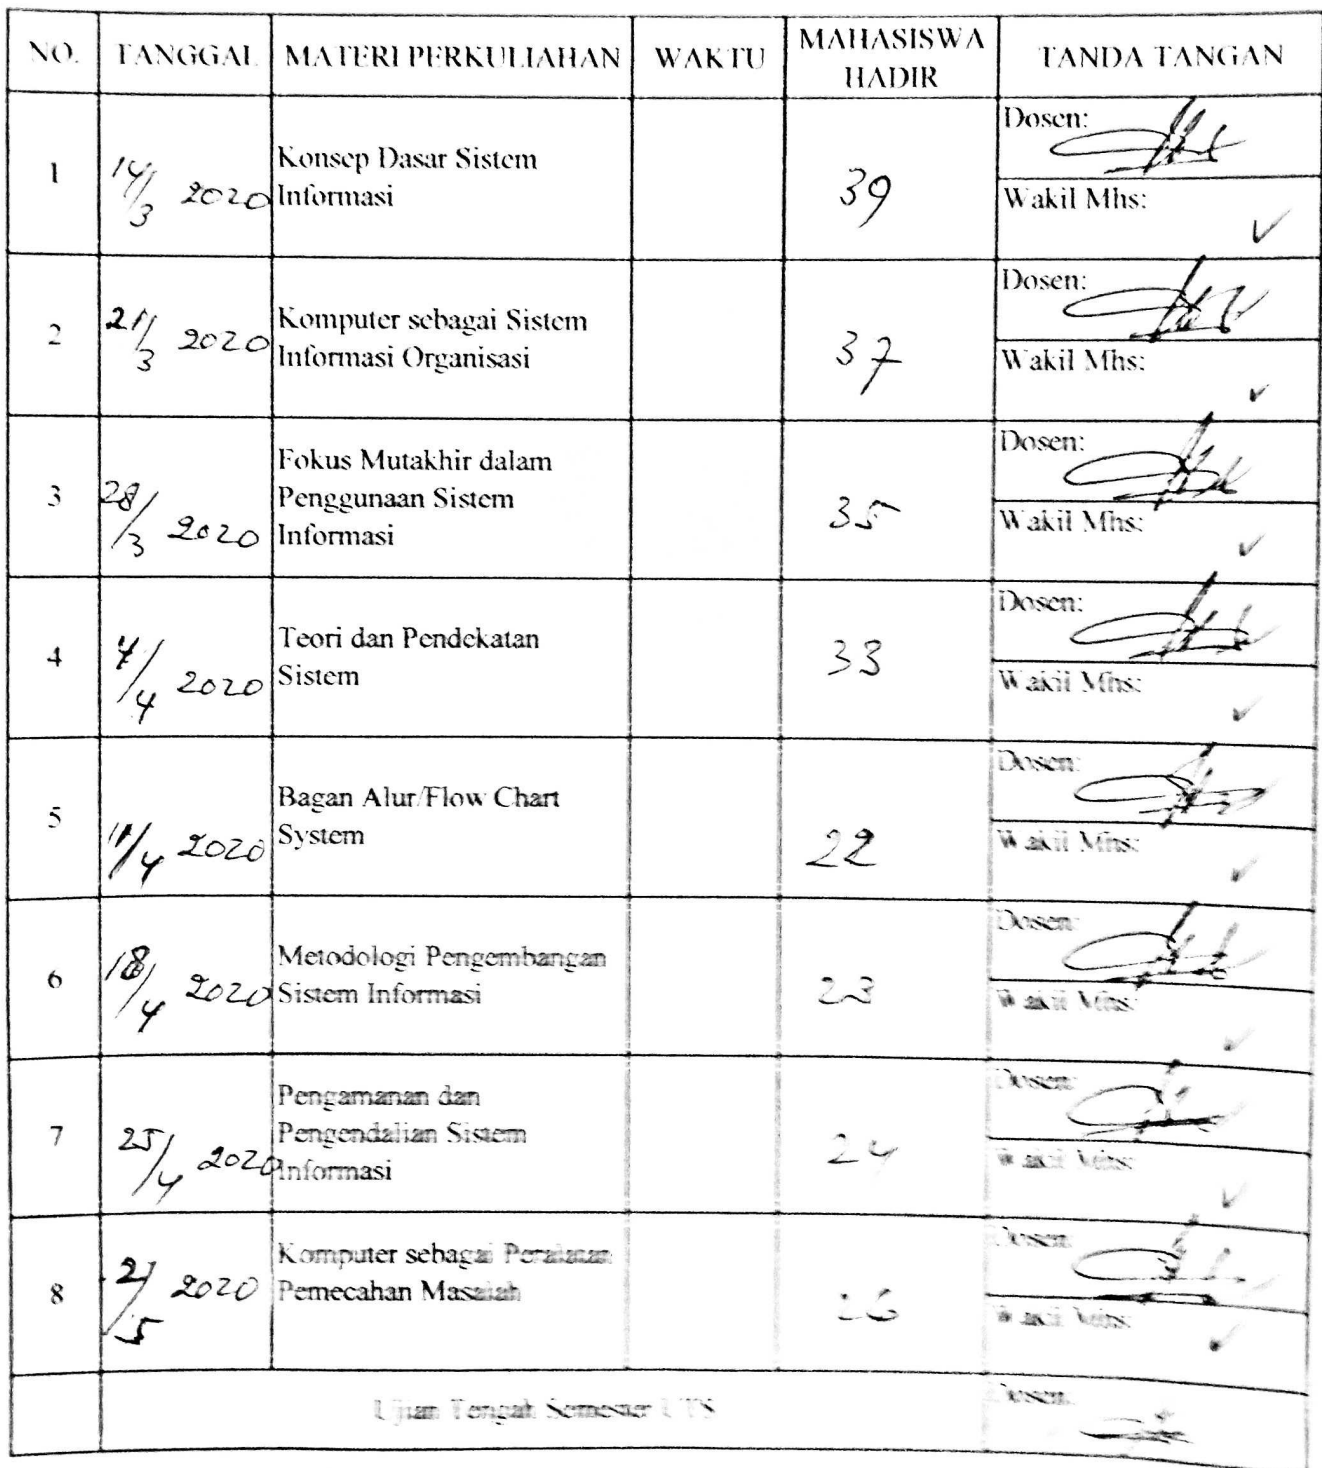 NO. TANGGAL MATERI PERKULIAHAN WAKTU MAHASISWA HADIR TANDA TANGAN
1 14/3 2020 Konsep Dasar Sistem Informasi 39 Dosen:
Wakil Mhs: ✓
2 21/3 2020 Komputer sebagai Sistem Informasi Organisasi 37 Dosen:
Wakil Mhs: ✓
3 28/3 2020 Fokus Mutakhir dalam Penggunaan Sistem Informasi 35 Dosen:
Wakil Mhs: ✓
4 4/4 2020 Teori dan Pendekatan Sistem 33 Dosen:
Wakil Mhs: ✓
5 11/4 2020 Bagan Alur/Flow Chart System 22 Dosen:
Wakil Mhs: ✓
6 18/4 2020 Metodologi Pengembangan Sistem Informasi 23 Dosen:
Wakil Mhs: ✓
7 25/4 2020 Pengamanan dan Pengendalian Sistem Informasi 24 Dosen:
Wakil Mhs: ✓
8 2/5 2020 Komputer sebagai Peralatan Pemecahan Masalah 26 Dosen:
Wakil Mhs: ✓
Ujian Tengah Semester UTS Dosen: